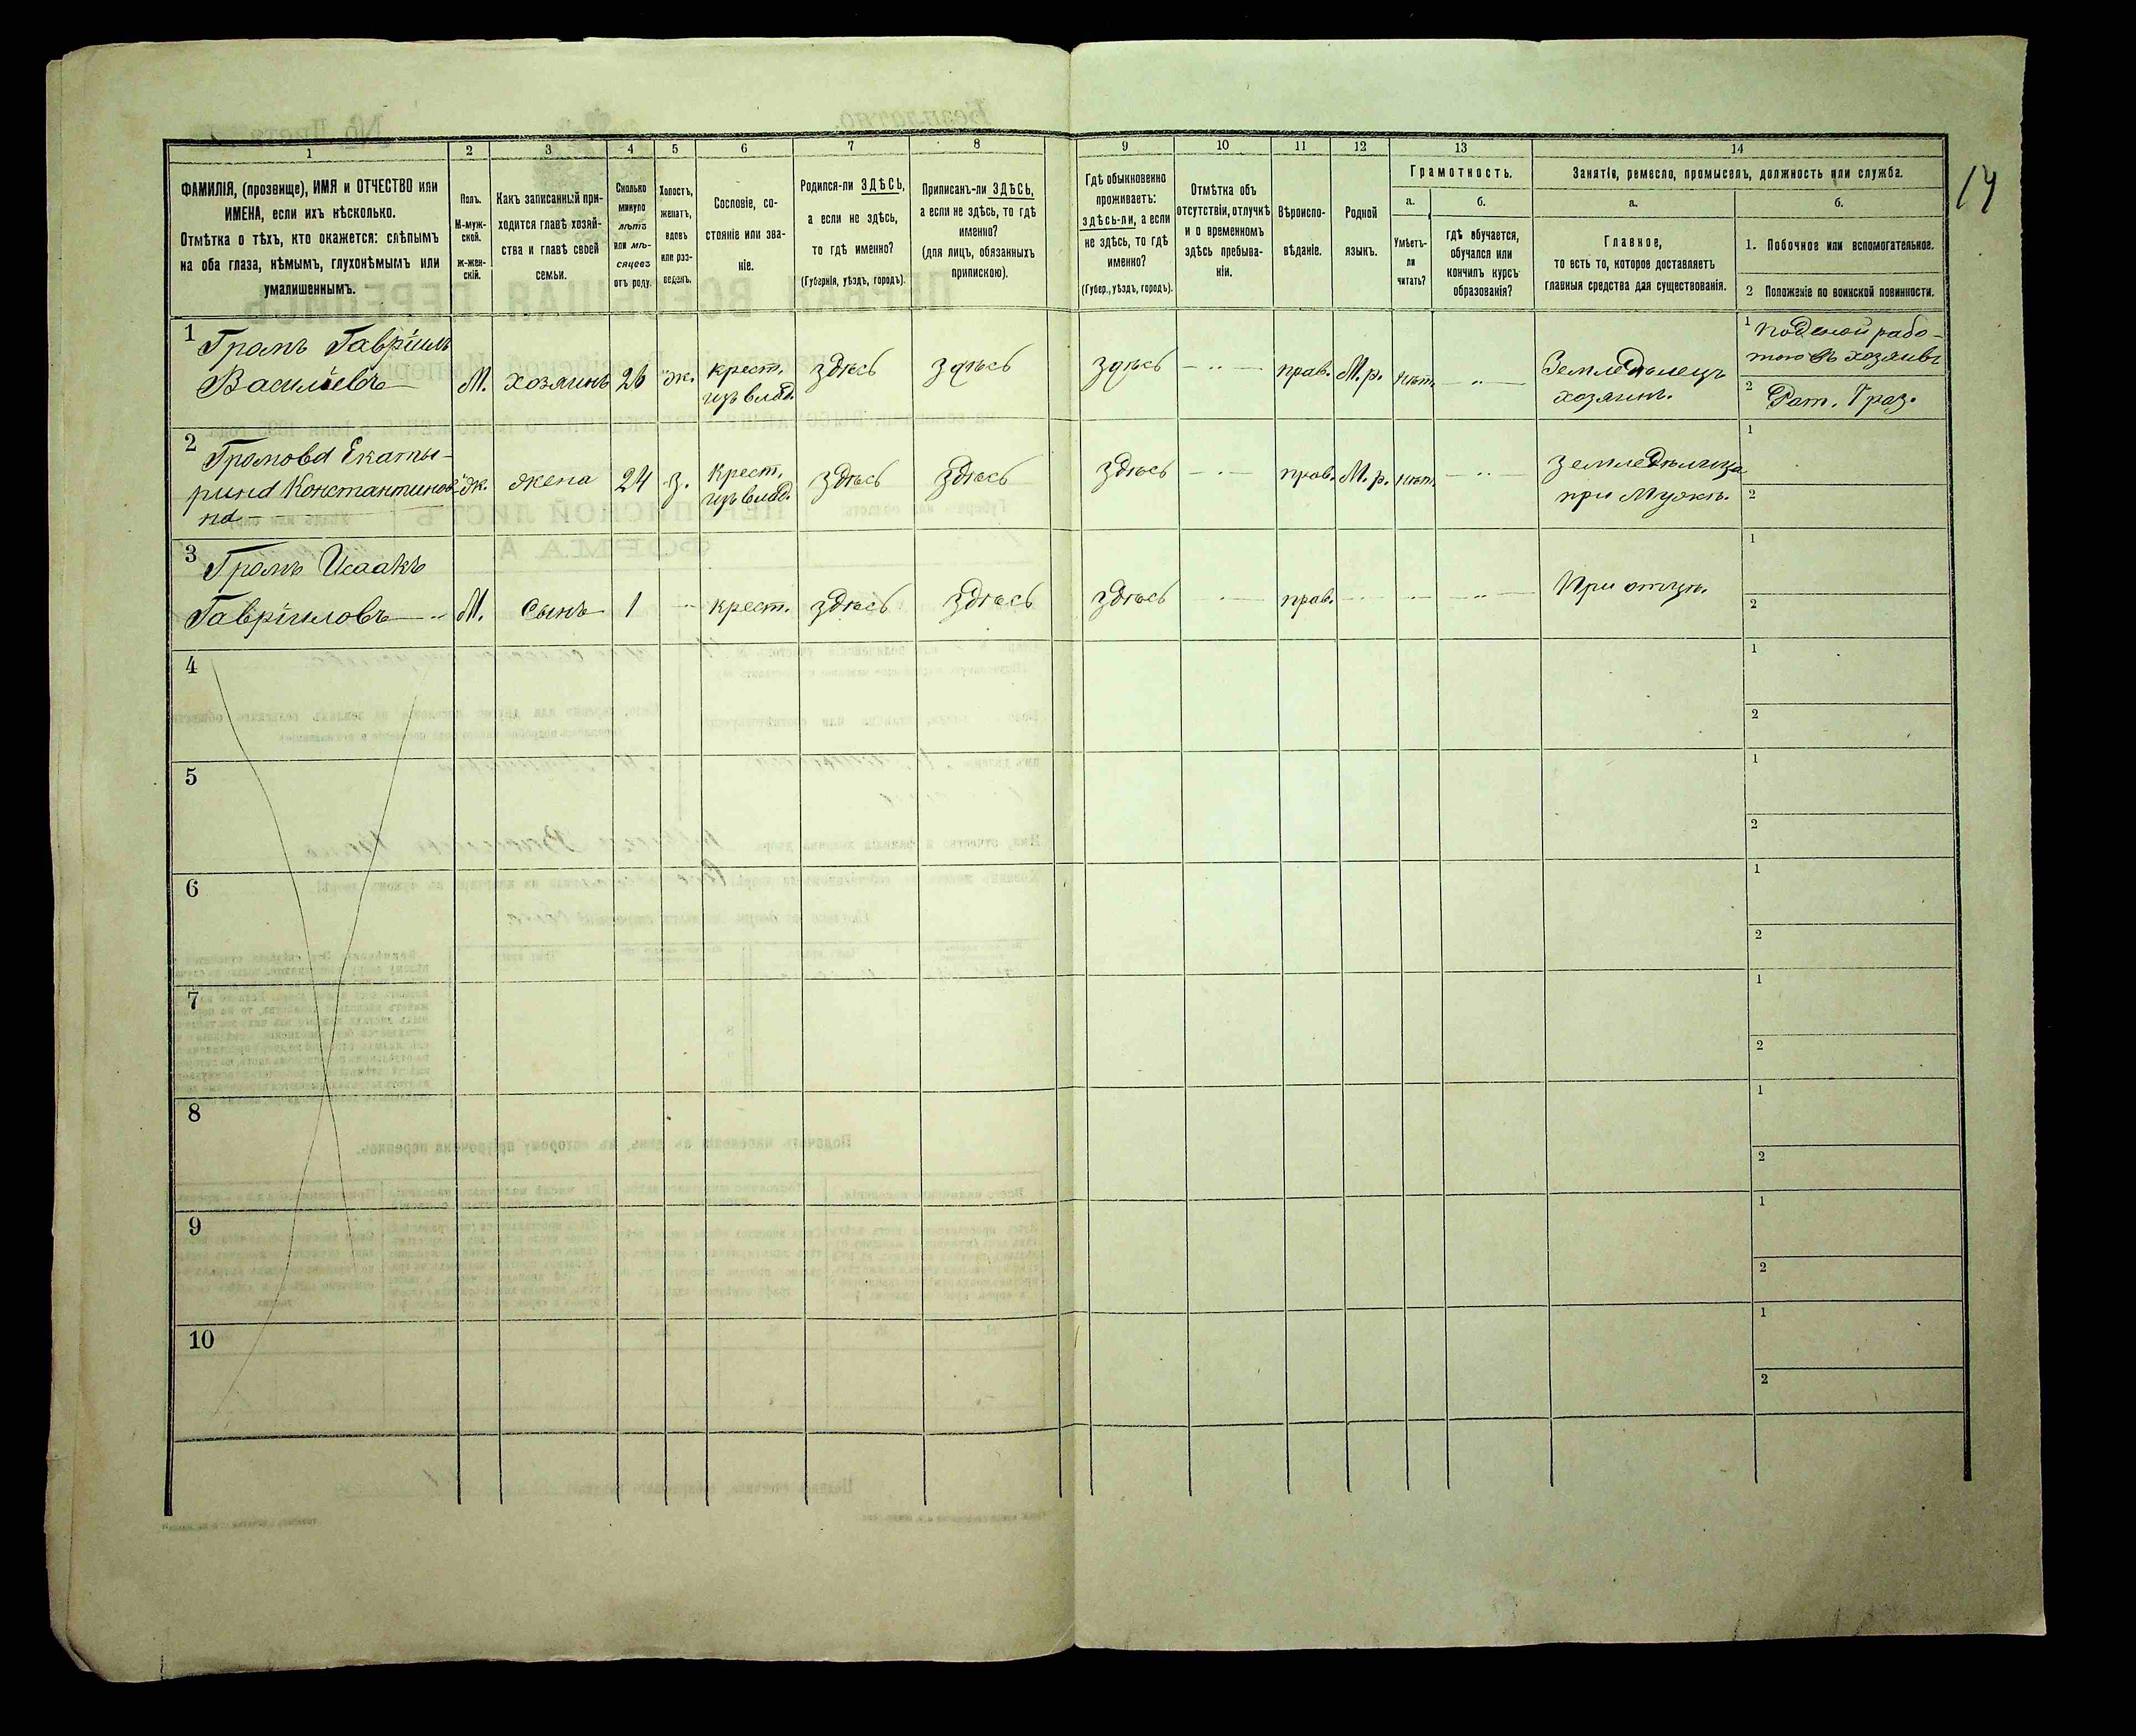 1 2 3 4 5 6 7 8 9 10 11 12 13 14
ФАМИЛІЯ, (прозвище), ИМЯ и ОТЧЕСТВО или
ИМЕНА, если ихъ нѣсколько.
Отмѣтка о тѣхъ, кто окажется: слѣпымъ
на оба глаза, нѣмымъ, глухонѣмымъ или
умалишеннымъ.
Полъ.
М-муж-
ской.
ж-жен-
скій.
Какъ записанный при-
ходится главѣ хозяй-
ства и главѣ своей
семьи.
Сколько
минуло
лѣтъ
или мѣ-
сяцевъ
отъ роду.
Холостъ,
женатъ,
вдовъ
или раз-
веденъ.
Сословіе, со-
стояніе или зва-
ніе.
Родился-ли ЗДѢСЬ,
а если не здѣсь,
то гдѣ именно?
(Губернія, уѣздъ, городъ).
Приписанъ-ли ЗДѢСЬ,
а если не здѣсь, то гдѣ
именно?
(для лицъ, обязанныхъ
припискою).
Гдѣ обыкновенно
проживаетъ:
здѣсь-ли, а если
не здѣсь, то гдѣ
именно?
(Губер., уѣздъ, городъ).
Отмѣтка объ
отсутствіи, отлучкѣ
и о временномъ
здѣсь пребыва-
ніи.
Вѣроиспо-
вѣданіе.
Родной
языкъ.
Грамотность.
а.
Умѣетъ-
ли
читать?
б.
гдѣ обучается,
обучался или
кончилъ курсъ
образованія?
Занятіе, ремесло, промыселъ, должность или служба.
а.
Главное,
то есть то, которое доставляетъ
главныя средства для существованія.
б.
1. Побочное или вспомогательное.
2 Положеніе по воинской повинности.
14
1 Громъ Гавріилъ
Васильевъ М. хозяинъ 26 ж. крест. изъ влад. здѣсь здѣсь здѣсь — " — прав. М.р. нѣтъ — " — Земледѣлецъ
хозяинъ.
1 Поденой рабо-
тою въ хозяивъ
2 Рат. 1 раз.
2 Громова Екаты-
рина Константинов-
на ж. жена 24 з. Крест. изъ влад. здѣсь здѣсь здѣсь — " — прав. М.р. нѣтъ — " — земледѣлица
при мужѣ.
1
2
3 Громъ Исаакъ
Гавріиловъ М. Сынъ 1 " крест. здѣсь здѣсь здѣсь — " — прав. — " — При отцѣ.
1
2
4
1
2
5
1
2
6
1
2
7
1
2
8
1
2
9
1
2
10
1
2